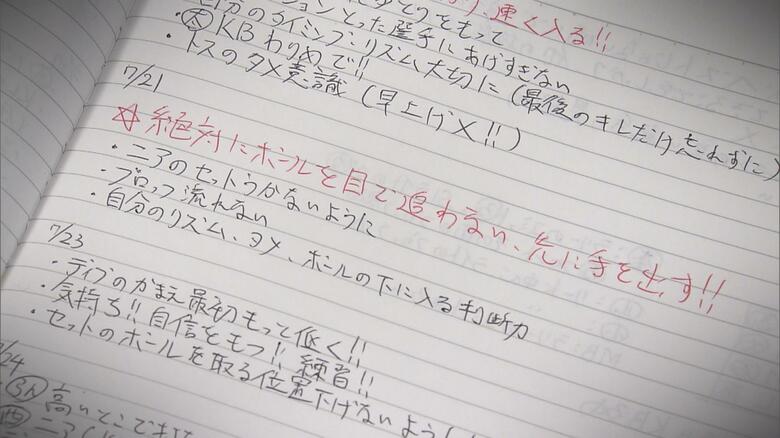 速く入る!!
ゆとりをもって
ションとった選手にあげすぎない
自分のタイミング・リズム大切に(最後のキレだけ忘れずに)
・KBわりめで!!
・トスのタメ意識(早上げ×!!)
7/21
☆絶対にボールを目で追わない、先に手を出す!!
・ニアのセットうかないように
・ブロック流れない
・自分のリズム、タメ、ボールの下に入る判断力
7/23
・ディグのかまえ最初もって低く!!
・気持ち!!自信をもつ!!練習!!
・セットのボールを取る位置下げないよう
/24
高いとこで
ニア